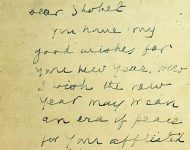 dear Shobet
You have my
good wishes for
your new year. How
I wish the new
year may mean
an era of peace
for your afflicted